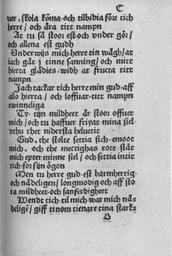 C
uer, skola köma och tilbidia före tich
herre, och ära titt nampn
Ät tu äst stoor och vnder gör,
och allena est gudh
Vnderwijs mich herre tin wägh, at
iach går j tinne sanning, och mitt
hierta glädies widh at fructa titt
nampn
Jach tackar tich herre min gud aff
allo hierta, och loffuar titt nampn
ewinneliga
Ty tijn mildheet är stoor offuer
mich, och tu haffuer friyat mina siel
vthu thet nidersta helueti
Gud, the stolte settia sich emoot
mich, och the mectighas rote står
mich epter minne siel, och settia intit
tich for sijn ögon
Men tu herre gud est barmhertig
och nådeligen, longmodig och aff sto
ra mildheet och sanferdigheet
Wende tich til mich war mich nå
delig, giff tinom tienare tina starks
D